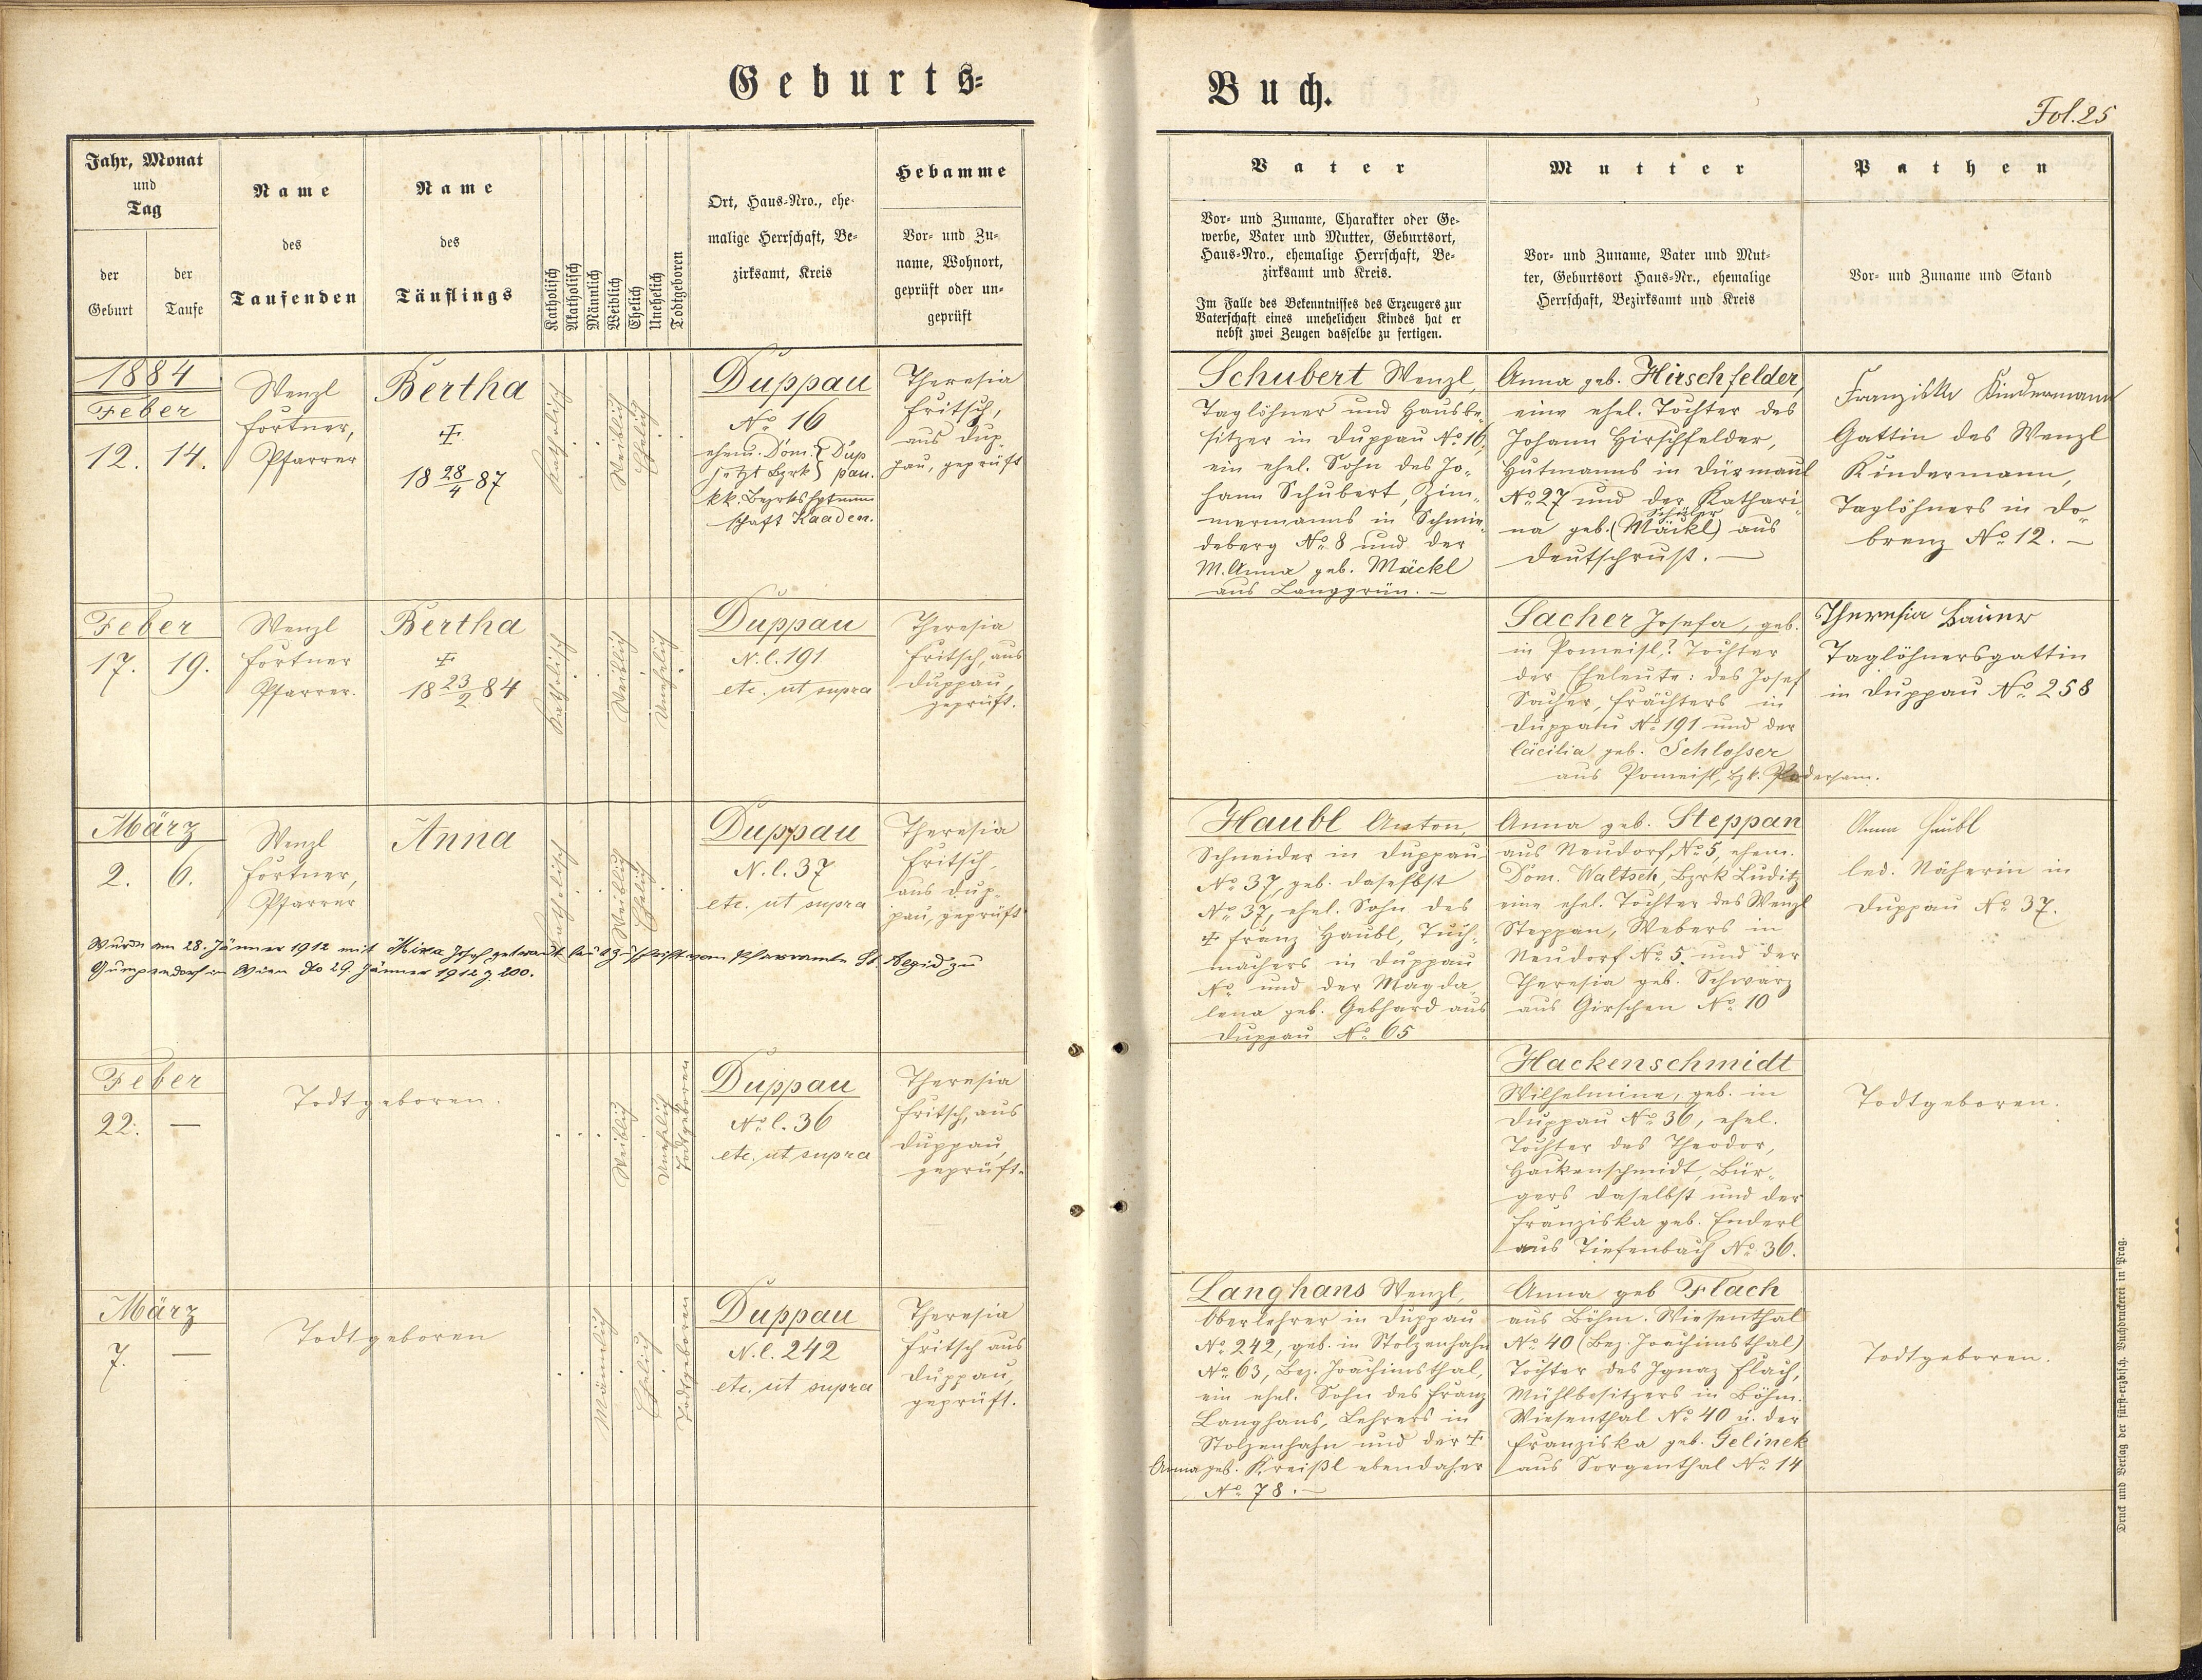 Geburts=
Buch.
Fol. 25
Jahr, Monat
und
Tag
der
Geburt
der
Taufe
Name
des
Taufenden
Name
des
Täuflings
Katholisch
Akatholisch
Männlich
Weiblich
Ehelich
Unehelich
Todtgeboren
Ort, Haus-Nro., ehe-
malige Herrschaft, Be-
zirksamt, Kreis
Hebamme
Vor- und Zu-
name, Wohnort,
geprüft oder un-
geprüft
Vater
Vor- und Zuname, Charakter oder Ge-
werbe, Vater und Mutter, Geburtsort,
Haus-Nro., ehemalige Herrschaft, Be-
zirksamt und Kreis.
Im Falle des Bekenntnisses des Erzeugers zur
Vaterschaft eines unehelichen Kindes hat er
nebst zwei Zeugen dasselbe zu fertigen.
Mutter
Vor- und Zuname, Vater und Mut-
ter, Geburtsort Haus-Nr., ehemalige
Herrschaft, Bezirksamt und Kreis
Pathen
Vor- und Zuname und Stand
1884
Feber
12. 14.
Wenzl
Förtner,
Pfarrer
Bertha
18 28/4 87
Katholisch
Weiblich
Ehelich
Duppau
No 16
ehem. Dom. } Dup
jetzt Bzrk } pau.
kk. Bezrkshptman
schaft Kaaden.
Theresia
Fritsch,
aus Dup-
pau, geprüft
Schubert Wenzl,
Taglöhner und Hausbe-
sitzer in Duppau No 16,
ein ehel. Sohn des Jo-
hann Schubert, Zim-
mermanns in Schmie-
deberg No 8 und der
M. Anna geb. Mäckl
aus Langgrün. —
Anna geb. Hirschfelder,
eine ehel. Tochter des
Johann Hirschfelder,
Hutmanns in Dürmaul
No 27 und der Kathari-
na geb. (Mäckl) aus
Deutschrust. —
Franziska Kindermann
Gattin des Wenzl
Kindermann,
Taglöhners in Do-
brenz No 12. —
Feber
17. 19.
Wenzl
Förtner
Pfarrer.
Bertha
18 23/2 84
Katholisch
Weiblich
Unehelich
Duppau
N. C. 191
etc. ut supra
Theresia
Fritsch, aus
Duppau,
geprüft.
Sacher Josefa, geb.
in Pomeisl,? Tochter
der Eheleute: des Josef
Sacher, Frächters in
Duppau No 191 und der
Cäcilia geb. Schlosser
aus Pomeisl, Bzk. Podersam.
Theresia Baier
Taglöhnersgattin
in Duppau No 258
März
2. 6.
Wenzl
Förtner,
Pfarrer
Anna
Katholisch
Weiblich
Ehelich
Duppau
N. C. 37
etc. ut supra
Theresia
Fritsch
aus Dup-
pau, geprüft
Wurde am 28. Jänner 1912 mit Josef getraut laut Zuschrift vom Pfarramte St. Aegid zu
Gumpendorf in Wien do 29. Jänner 1912 z. 200.
Haubl Anton,
Schneider in Duppau
No 37, geb. daselbst
No 37, ehel. Sohn des
Franz Haubl, Tuch-
machers in Duppau
No und der Magda-
lena geb. Gebhard aus
Duppau No 65
Anna geb. Steppan
aus Neudorf, No 5, ehem.
Dom. Waltsch, Bzrk Luditz
eine ehel. Tochter des Wenzl
Steppan, Webers in
Neudorf No 5. und der
Theresia geb. Schwarz
aus Girschen No 10
Anna Haubl
led. Näherin in
Duppau No 37.
Feber
22. —
Todtgeboren.
Weiblich
Unehelich
Todtgeboren
Duppau
No C. 36
etc. ut supra
Theresia
Fritsch, aus
Duppau,
geprüft.
Hackenschmidt
Wilhelmine, geb. in
Duppau No 36, ehel.
Tochter des Theodor,
Hackenschmidt, Bür-
gers daselbst und der
Franziska geb. Enderl
aus Tiefenbach No 36.
Todtgeboren.
März
7. —
Todtgeboren
Männlich
Ehelich
Todtgeboren
Duppau
N. C. 242
etc. ut supra
Theresia
Fritsch aus
Duppau,
geprüft.
Langhans Wenzl,
Oberlehrer in Duppau
No 242, geb. in Stolzenhahn
No 63, Bez. Joachimsthal,
ein ehel. Sohn des Franz
Langhans, Lehrers in
Stolzenhahn und der
Anna geb. Kreißl ebendaher
No 78. —
Anna geb Flach
aus Böhm. Wiesenthal
No 40 (Bez. Joachimsthal)
Tochter des Ignaz Flach,
Mühlbesitzers in Böhm.
Wiesenthal No 40 u. der
Franziska geb. Gelinek
aus Sorgenthal No 14
Todtgeboren.
Druck und Verlag der fürst-erzbisch. Buchdruckerei in Prag.